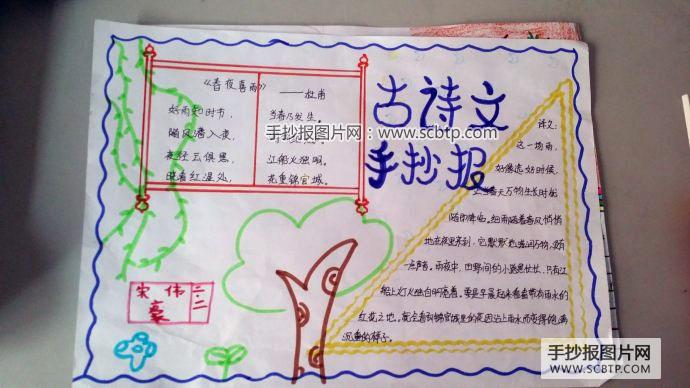 古诗文
手抄报
《春夜喜雨》
——杜甫
好雨知时节，
当春乃发生。
随风潜入夜，
野径云俱黑，
江船火独明。
晓看红湿处，
花重锦官城。
手抄报图片网：www.scbtp.com
译文：
这一场雨，
好像选好时候，
正当春天万物生长时就
随即降临。细雨随着春风悄悄
地在夜里来到，它默默地滋润万物，没有
一点声音。雨夜中，田野间的小路黑茫茫，只有江
船上灯火独自明亮着。要是早晨起来看看带有雨水的
红花之地。
沉重的样子。
宋伟
豪
二.二
手抄报图片网
WWW.SCBTP.COM